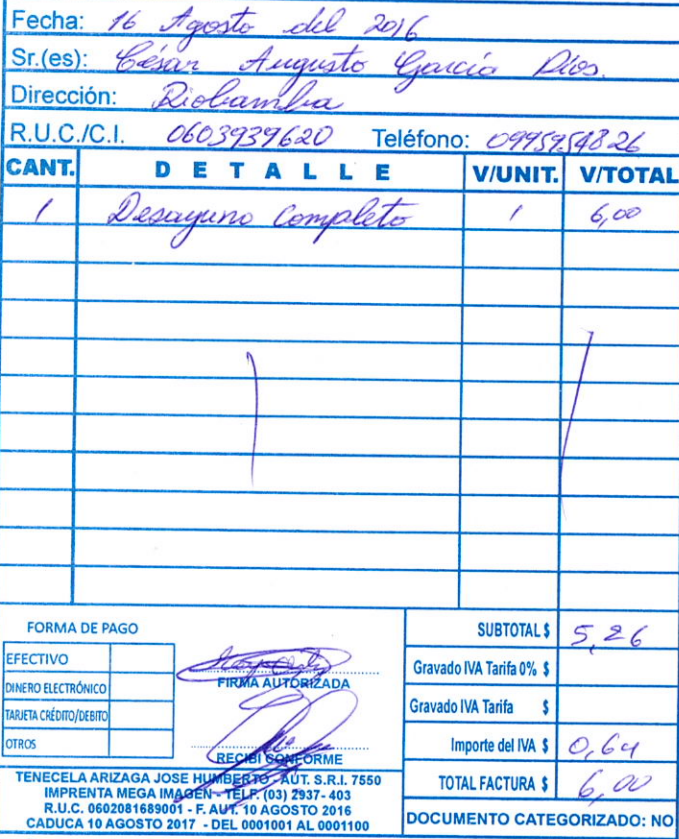 Fecha: 16 Agosto del 2016
Sr.(es): César Augusto García Dios.
Dirección: Riobamba
R.U.C./C.I. 0603939620 Teléfono: 0995954826
CANT. DETALLE V/UNIT. V/TOTAL
1 Desayuno Completo 1 6,00
FORMA DE PAGO
EFECTIVO
DINERO ELECTRÓNICO
TARJETA CRÉDITO/DEBITO
OTROS
FIRMA AUTORIZADA
RECIBI CONFORME
SUBTOTAL $ 5,26
Gravado IVA Tarifa 0% $
Gravado IVA Tarifa $
Importe del IVA $ 0,64
TOTAL FACTURA $ 6,00
TENECELA ARIZAGA JOSE HUMBERTO - AUT. S.R.I. 7550
IMPRENTA MEGA IMAGEN - TELF. (03) 2937- 403
R.U.C. 0602081689001 - F. AUT. 10 AGOSTO 2016
CADUCA 10 AGOSTO 2017 - DEL 0001001 AL 0001100
DOCUMENTO CATEGORIZADO: NO